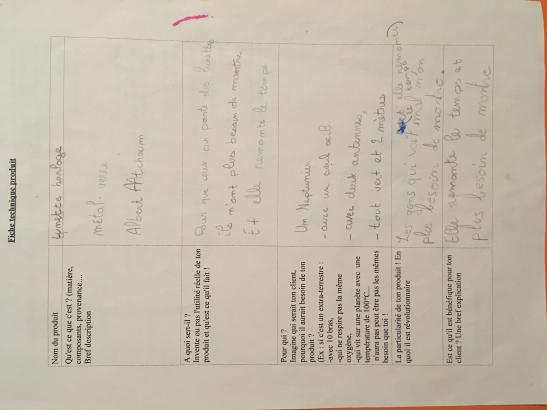 Fiche technique produit
Nom du produit
lunette horloge
Qu'est ce que c'est ? (matière,
composants, provenance....
Bref description
métal- verre
Albert
A quoi sert-il ?
Invente ou pas l'utilité réelle de ton
produit et qu'est ce qu'il fait !
Pour que ceux qui porte des lunettes
ils n'ont plus besoin de montre
Et elle remonte le temps
Pour qui ?
Imagine qui serait ton client,
pourquoi il aurait besoin de ton
produit ?
(Ex : si c'est un extra-terrestre :
-avec 10 bras,
-qui ne respire pas la même
oxygène,
-qui vit sur une planète avec une
température de 100°C...
n'aura pas peut être pas les mêmes
besoin que toi !
Un Neptunien
- avec un seul œil
- avec deux antennes,
- tout vert et 2 mètres
La particularité de ton produit ! En
quoi il est révolutionnaire
elle remonte)
Les gens qui voit mal n'on
plus besoin de montre.
Est ce qu'il est bénéfique pour ton
client ? Une bref explication
Elle remonte le temps et
plus besoin de montre